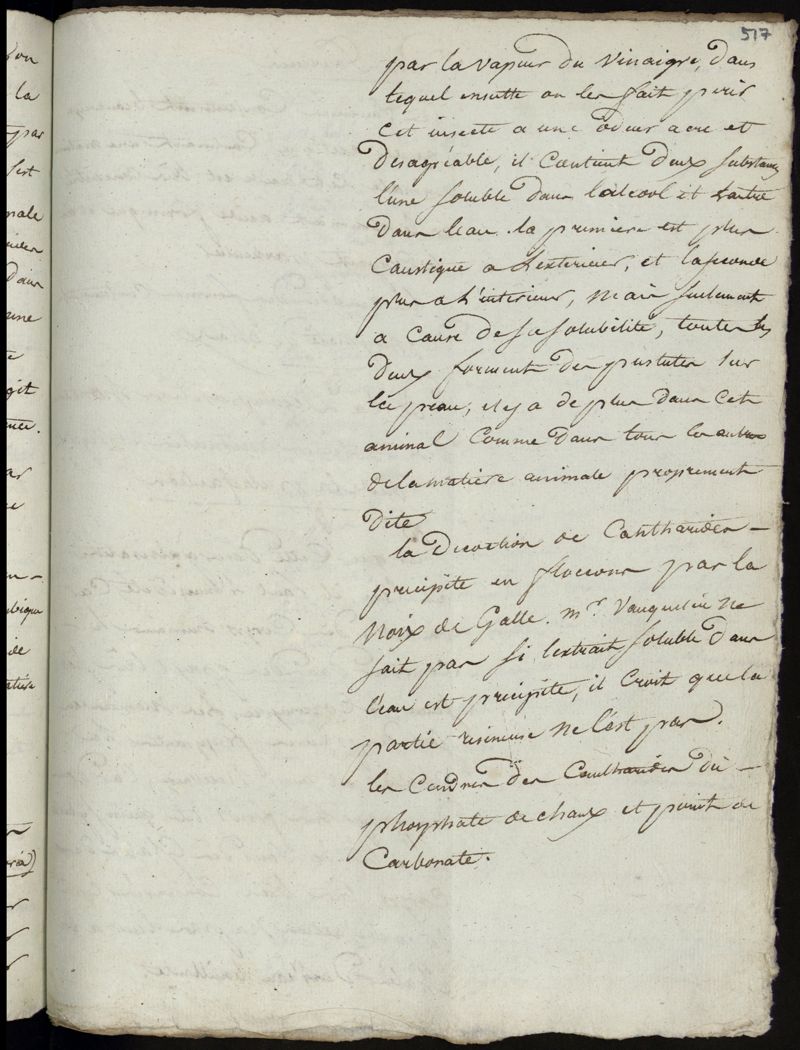 517
par la vapeur du vinaigre, dans
lequel ensuitte on les fait perir
cet insecte a une odeur acre et
desagréable, il contient deux substances
l'une soluble dans l'alcool et l'autre
dans l'eau. la premiere est plus
caustique a l'exterieur, et la seconde
plus a l'interieur, mais seulement
a cause de sa solubilité, toutes les
deux forment des pustules sur
la peau, il y a de plus dans cet
animal comme dans tous les autres
de la matiere animale proprement
dite
la decoction de cantharides
precipite en floccons par la
noix de Galle. mr. Vauquelin ne
sait pas si l'extrait soluble dans
l'eau est precipité, il croit que la
partie resineuse ne l'est pas.
les cendres des cantharides du
phosphate de chaux et point de
carbonate.
on
la
par
l'est
nale
dans
une
git
ar
de